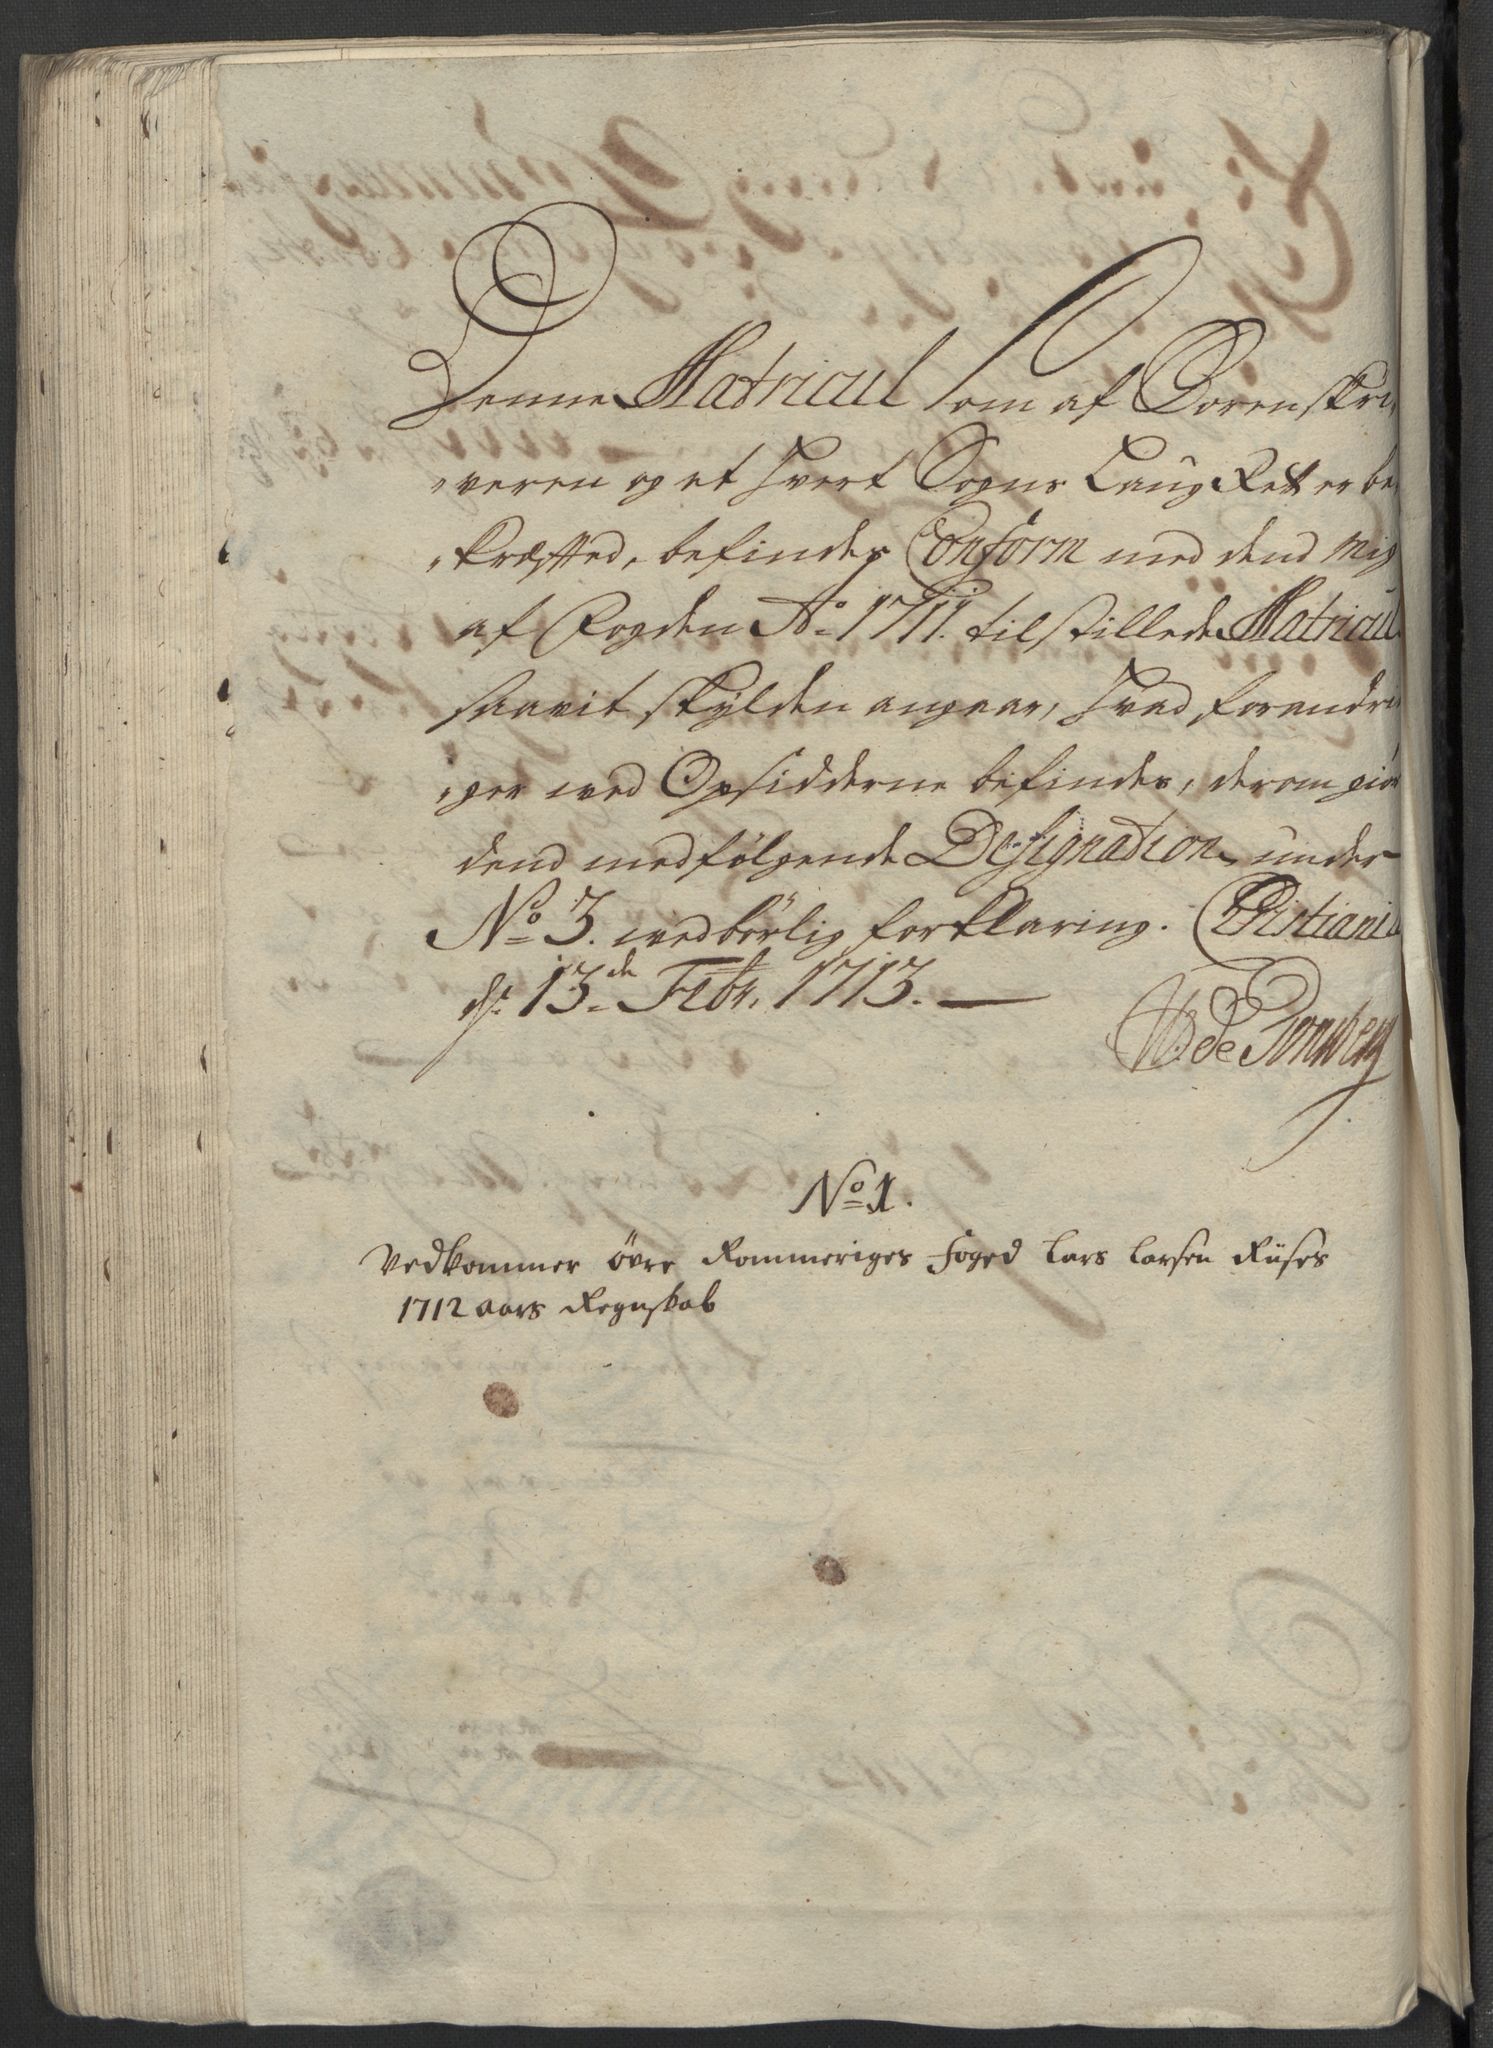 Denne Matricul som af Sorenskri¬
¬veren og et hvert Sogns LaugRett er be¬
¬kræfted, befindes Conform med dend mig
af Fogden A:o 1711. tilstillede Matricul
saavit skylden angaar, hvad forandrin¬
¬ger ved Opsidderne befindes, derom giør
dend medfølgende Designation under
No 3. vedbørlig forklaring. Christiania
d. 13de Febr. 1713.
W: de Tonsberg
No 1.
Vedkommer øvre Rommeriges Foged Lars Larsen Riises
1712 aars Regnskab